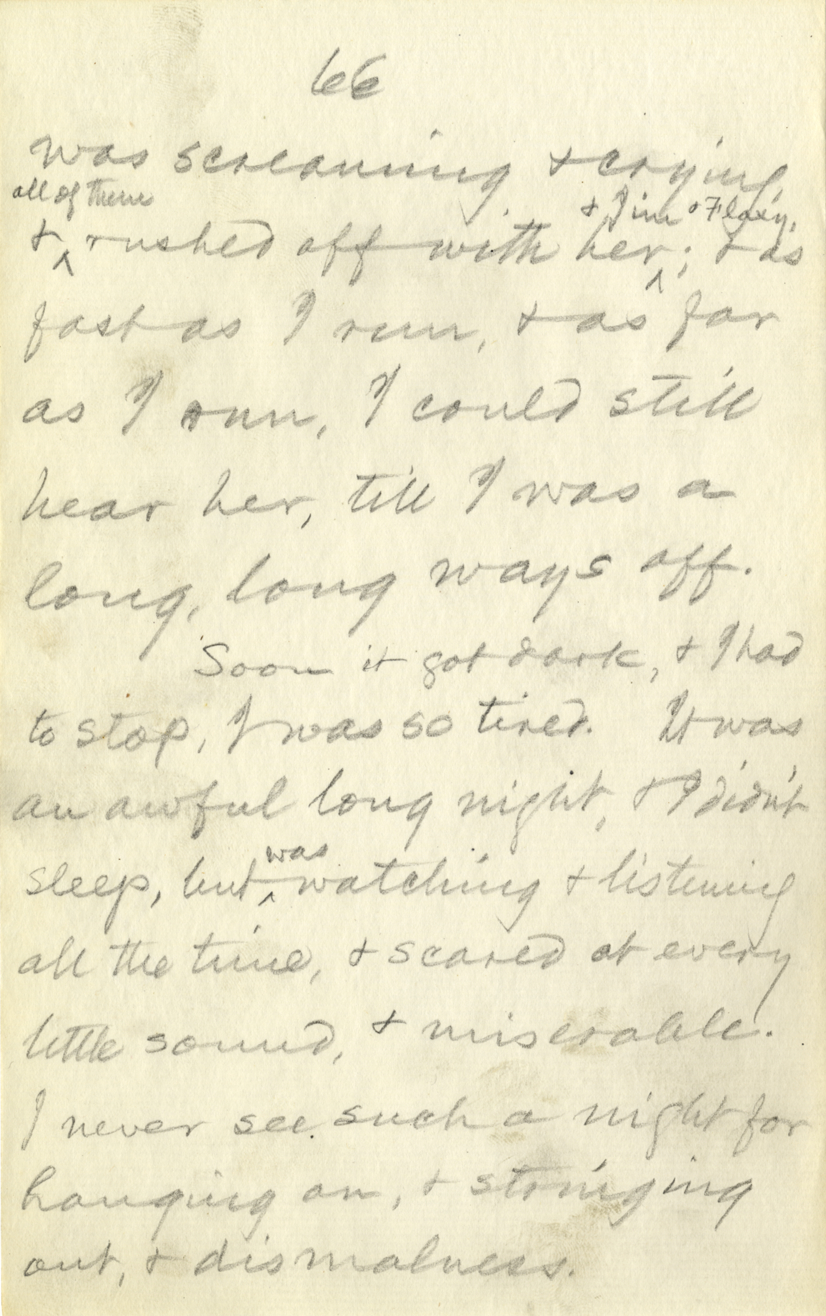 66
was screaming & crying,
all of them & Jim & Flaxy,
& ^ rushed off with her ^; & as
fast as I run, & as far
as I run, I could still
hear her, till I was a
long, long ways off.
Soon it got dark, & I had
to stop, I was so tired. It was
an awful long night, & I didn't
was
sleep, but ^ watching & listening
all the time, & scared at every
little sound, & miserable.
I never see such a night for
hanging on, & stringing
out, & dismalness.